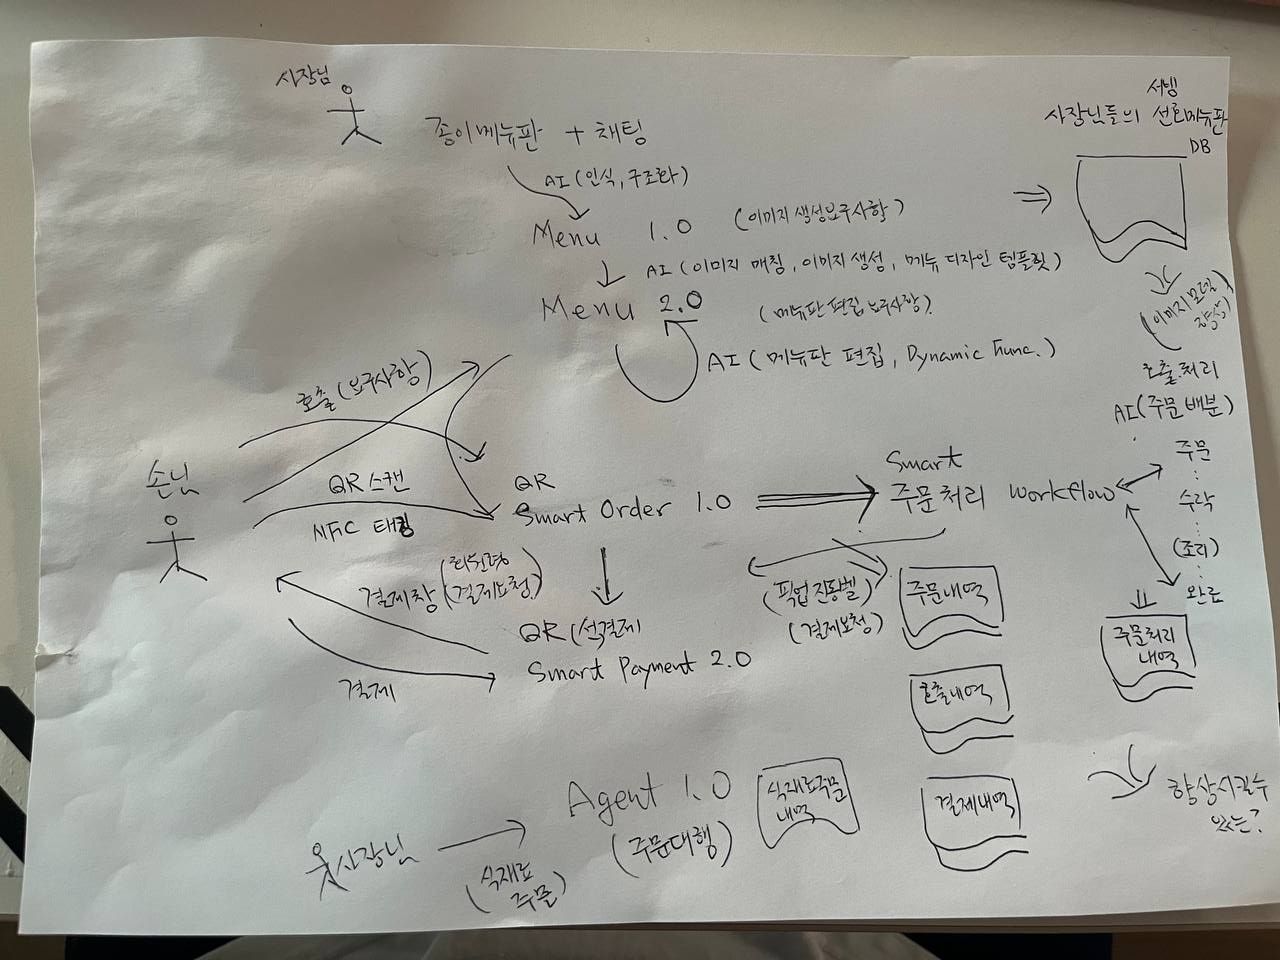 사장님
종이메뉴판 + 채팅
AI (인식, 구조화)
Menu 1.0 (이미지 생성요구사항)
AI (이미지 매칭, 이미지 생성, 메뉴 디자인 템플릿)
Menu 2.0 (메뉴판 편집 요구사항)
AI (메뉴판 편집, Dynamic Func.)
서빙
사장님들의 선호메뉴판
DB
(이미지 모델
호출처리
AI (주문배분)
주문
수락
(조리)
완료
주문처리
내역
향상시킬수
있는?
손님
호출 (요구사항)
QR 스캔
NFC 태킹
QR
Smart Order 1.0
Smart
주문처리 workflow
결제창 (결제요청)
결제
QR (선결제
Smart Payment 2.0
(픽업 진동벨)
(결제요청)
주문내역
호출내역
결제내역
사장님
(식재료
주문)
Agent 1.0
(주문대행)
식재료주문
내역